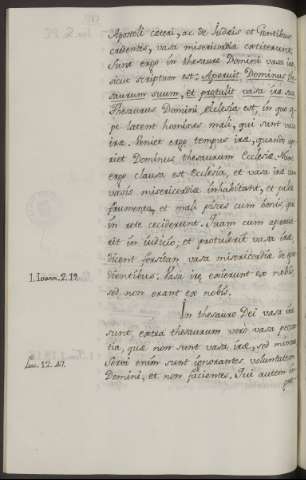 Apostoli cæteri, ac de Judæis et Gentibus
credentes, vasa misericordiæ extiterunt.
Sunt ergo in thesauro Domini vasa iræ,
sicut scriptum est: Aperuit Dominus the-
saurum suum, et protulit vasa iræ suæ.
Thesaurus Domini Ecclesia est, in qua
pe latent homines mali, qui sunt vasa
iræ. Veniet ergo tempus iræ, quando ape-
riet Dominus thesaurum Ecclesiæ. Nunc
ergo clausa est Ecclesia, et vasa iræ cum
vasis misericordiæ inhabitant, et paleæ
frumento, et mali pisces cum bonis, qui
in rete ceciderunt. Quam cum aperue-
rit in iudicio, et protulerit vasa iræ,
dicent forsitan vasa misericordiæ de
dientibus: Vasa iræ exierunt ex nobis,
I. Ioann. 2. 19.
sed non erant ex nobis.
In thesauro Dei vasa iræ
sunt, extra thesaurum vero vasa pecca-
tia, quæ non sunt vasa iræ, sed minora.
Luc. 12. 47.
Servi enim sunt ignorantes voluntatem
Domini, et non facientes. Qui autem in-